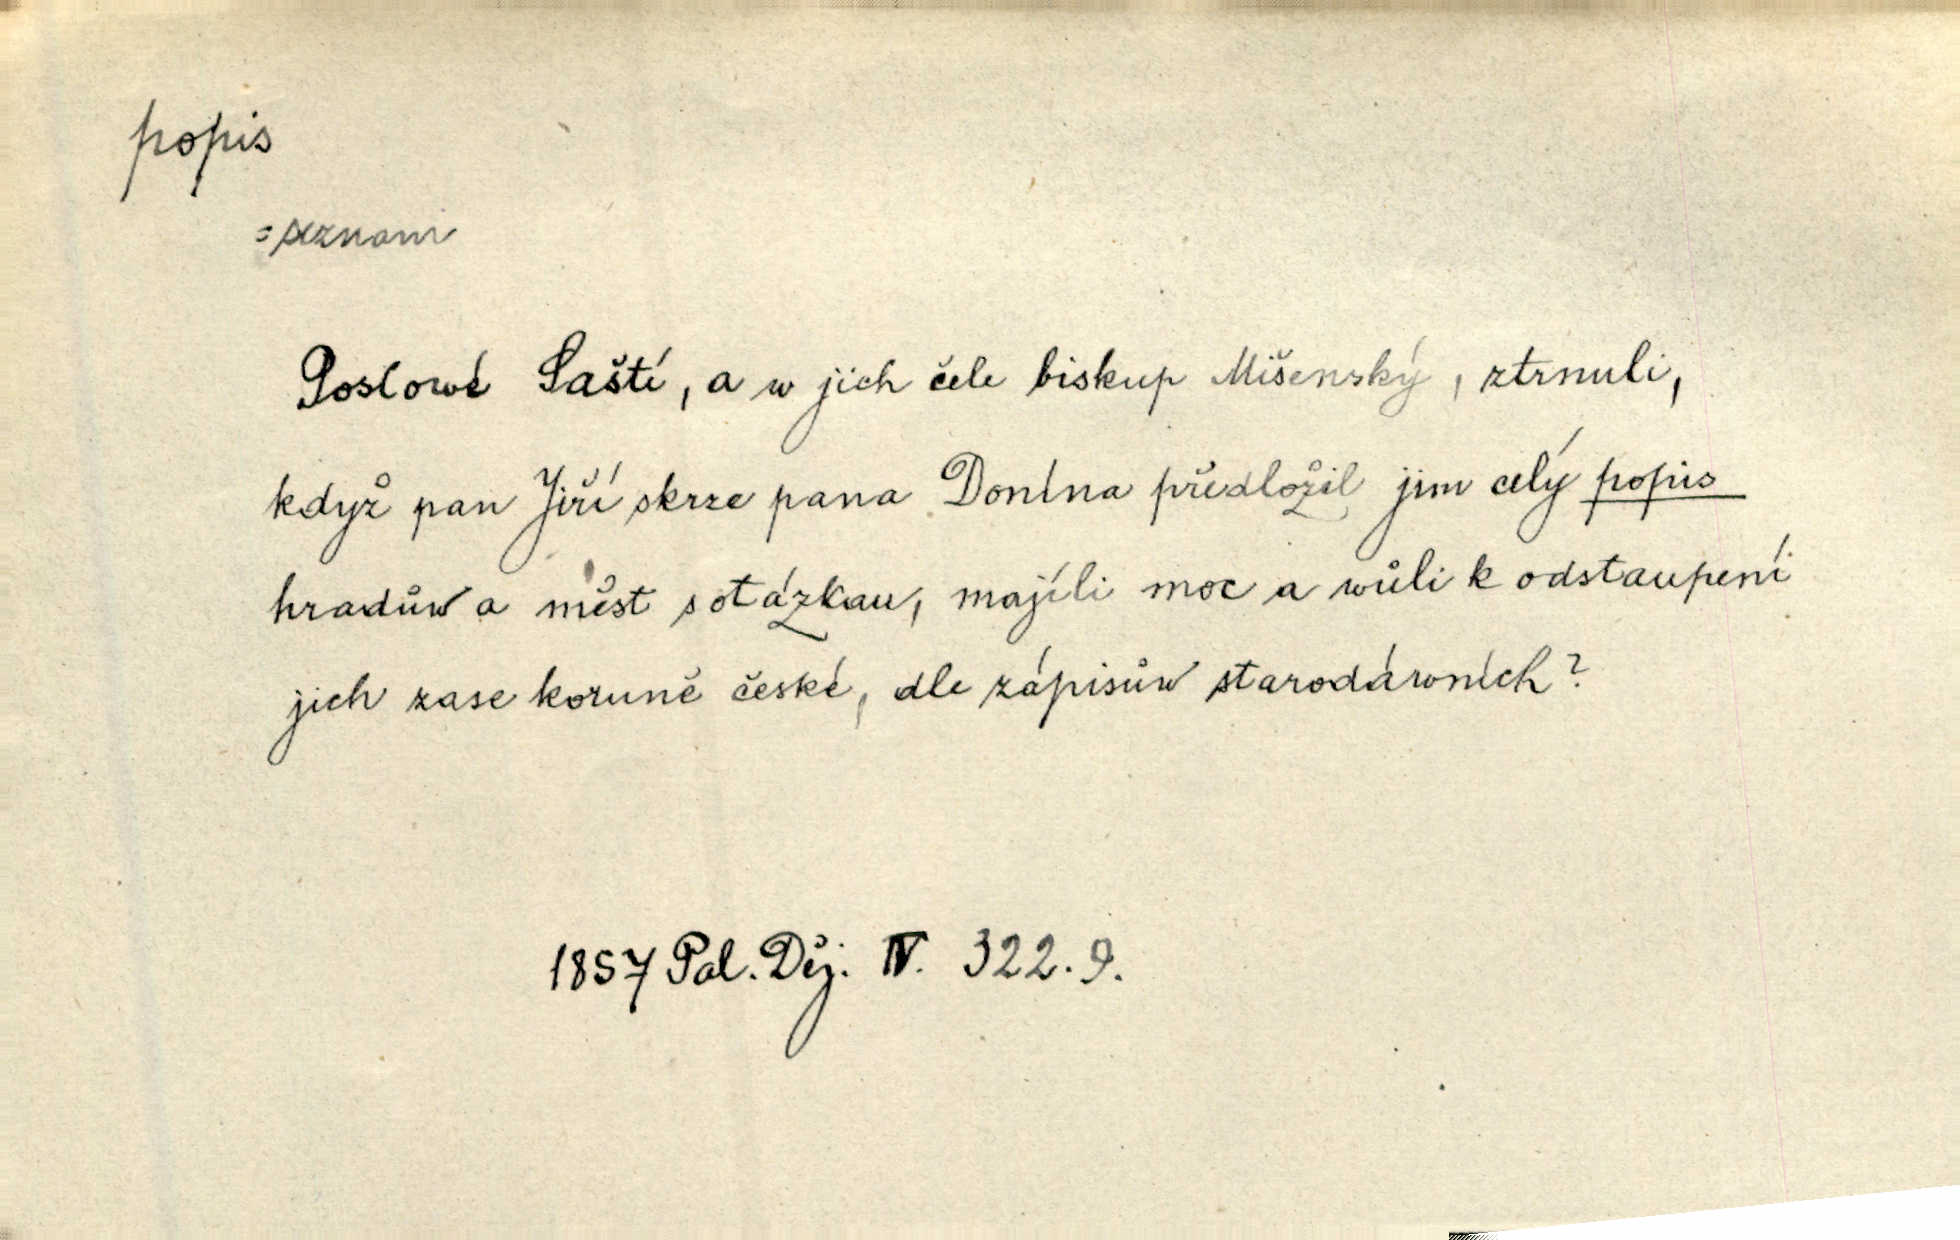 popis
= seznam
Poslowé Saští, a w jich čele biskup Mišenský, ztrnuli,
když pan Jiří skrze pana Donína předložil jim celý popis
hradůw a měst s otázkau, majíli moc a wůli k odstaupení
jich zase koruně české, dle zápisůw starodáwních?
1857 Pal. Děj. IV. 322. 9.